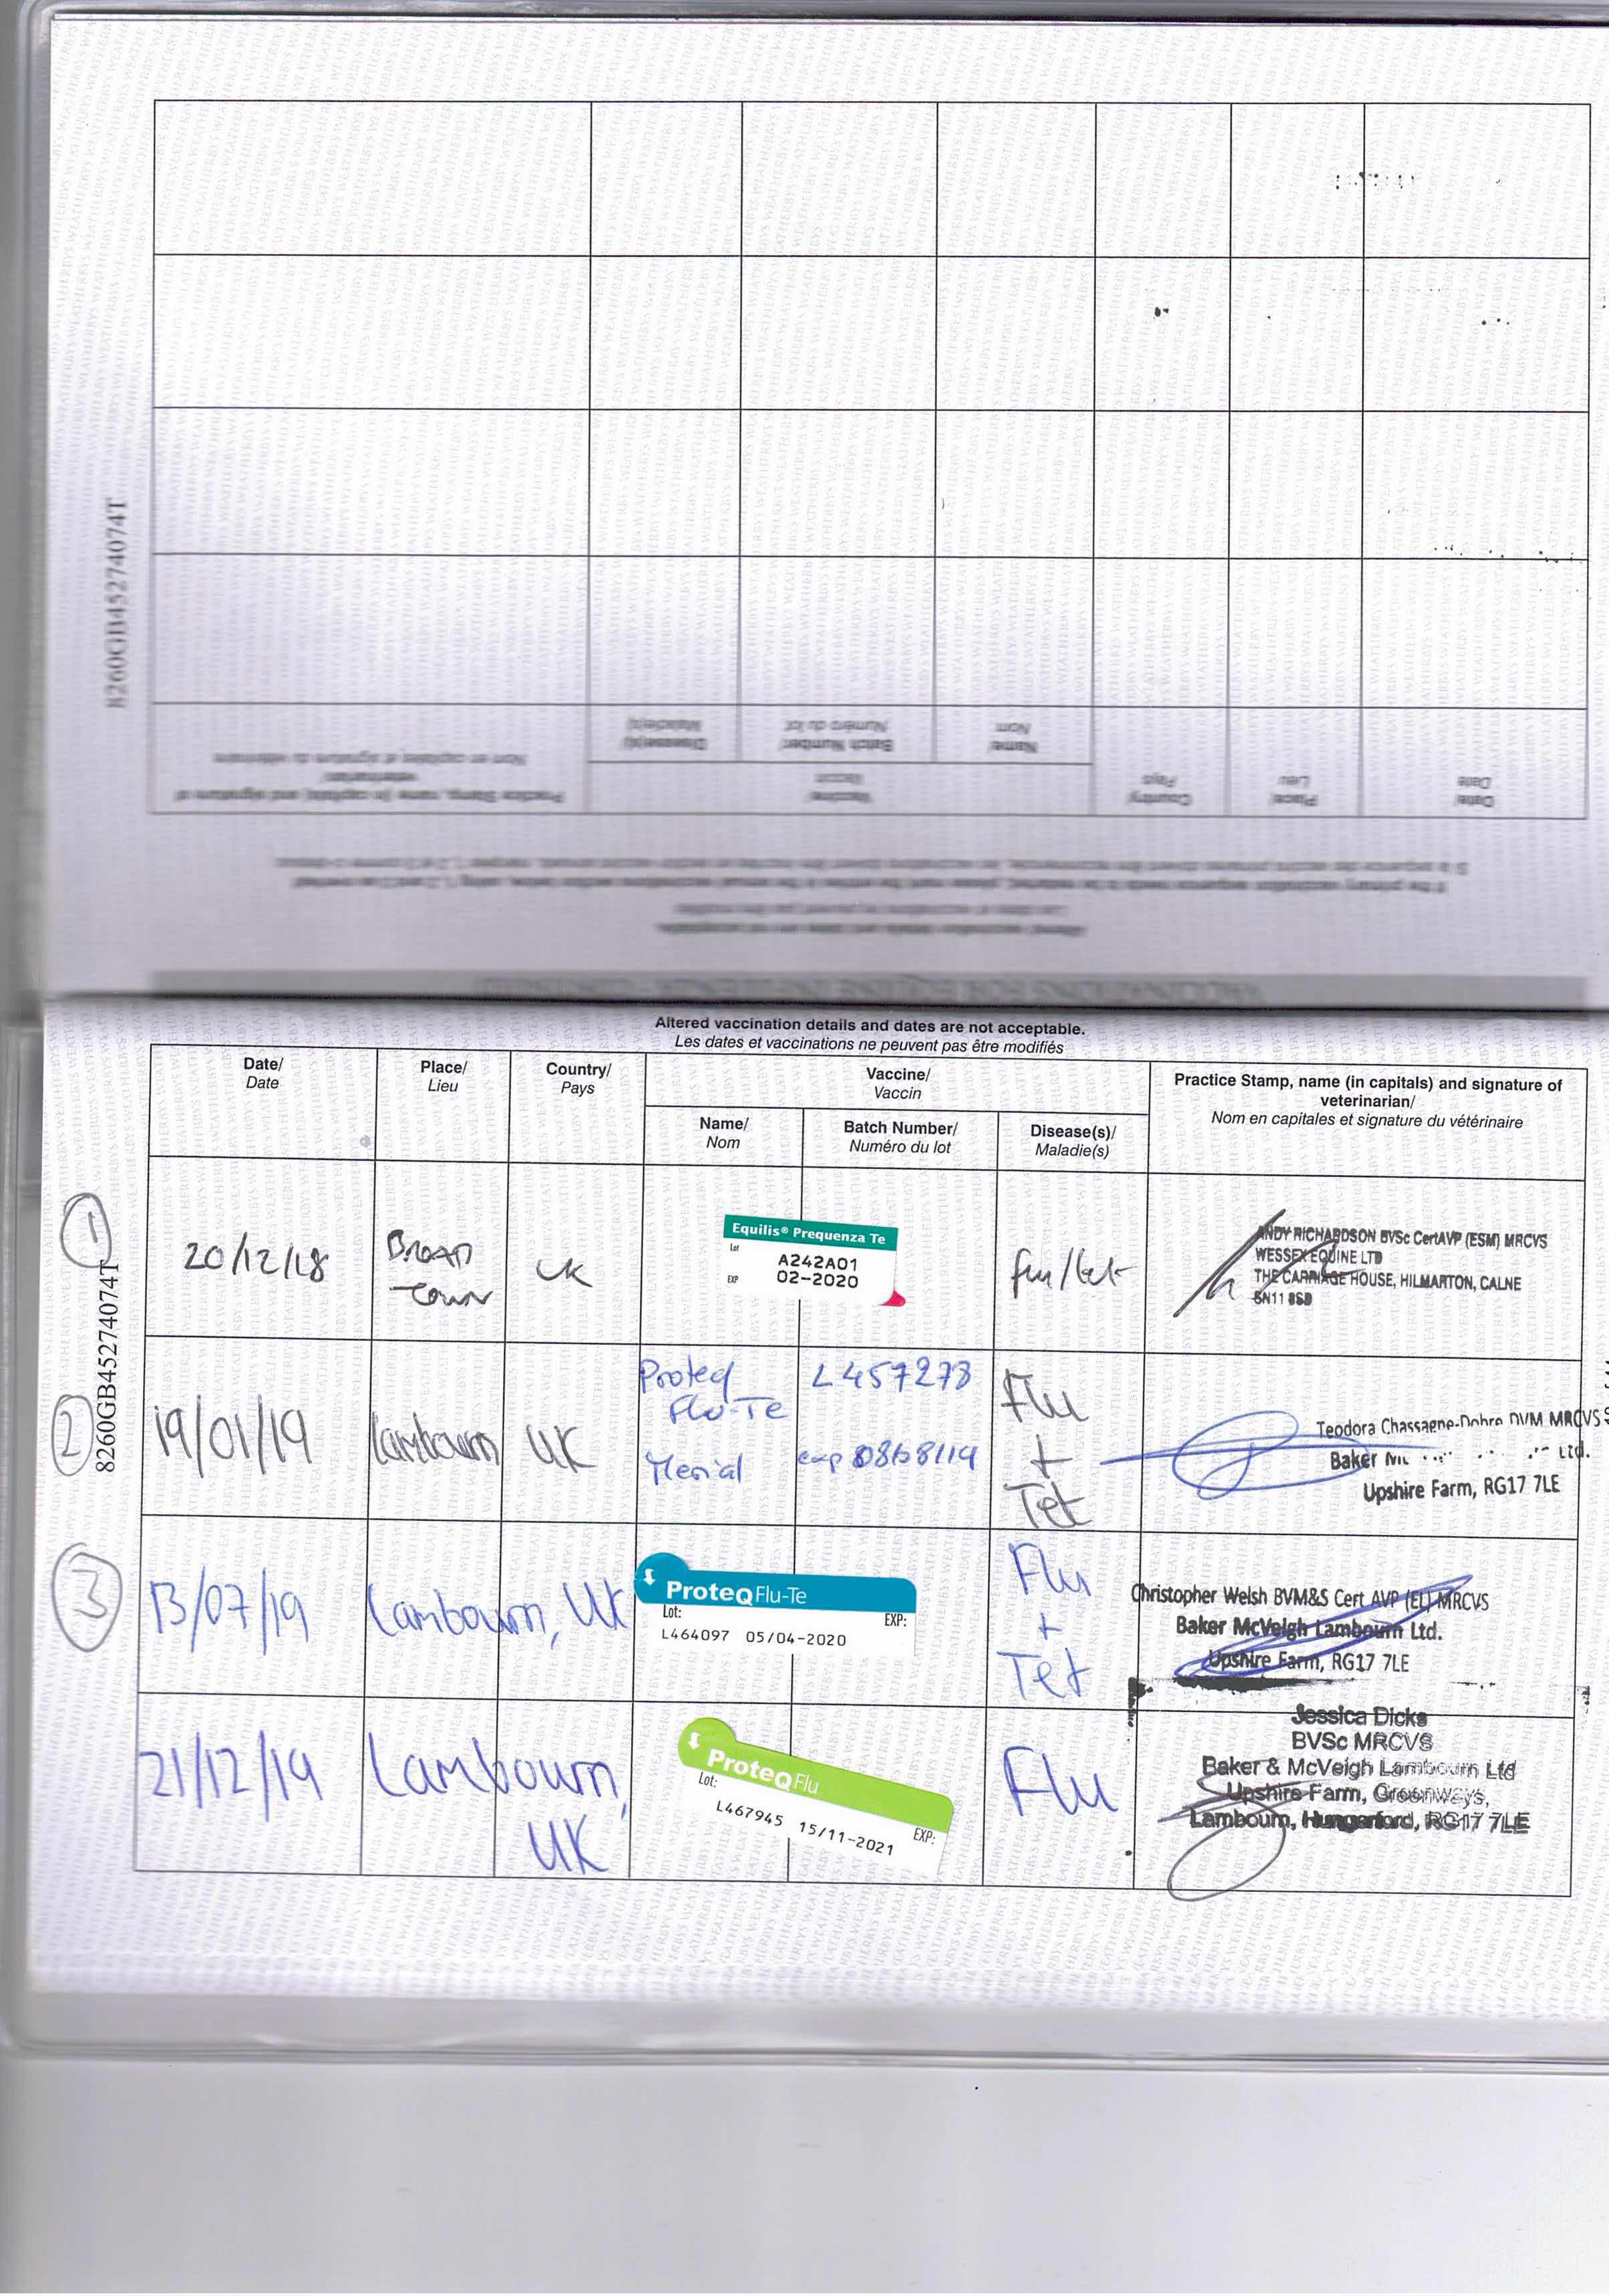 8260GB45274074T
Practice Stamp, name (in capitals) and signature of
veterinarian/
Nom en capitales et signature du vétérinaire
Vaccine
Vaccin
Disease(s)/
Maladie(s)
Batch Number/
Numéro du lot
Name/
Nom
Country/
Pays
Place/
Lieu
Date/
Date
Altered vaccination details and dates are not acceptable.
Les dates et vaccinations ne peuvent pas être modifiés
Altered vaccination details and dates are not acceptable.
Les dates et vaccinations ne peuvent pas être modifiés
Date/
Date
Place/
Lieu
Country/
Pays
Vaccine/
Vaccin
Name/
Nom
Batch Number/
Numéro du lot
Disease(s)/
Maladie(s)
Practice Stamp, name (in capitals) and signature of
veterinarian/
Nom en capitales et signature du vétérinaire
8260GB45274074T
1
20/12/18
Broad
Town
UK
Equilis® Prequenza Te
Lot
A242A01
EXP
02-2020
flu/tet
ANDY RICHARDSON BVSc CertAVP (ESM) MRCVS
WESSEX EQUINE LTD
THE CARRIAGE HOUSE, HILMARTON, CALNE
SN11 8SB
2
19/01/19
Lambourn
UK
Proteq
Flu-Te
Merial
L457273
exp
Flu
+
Tet
Teodora Chassagne-Dobre DVM MRCVS
Baker Ltd.
Upshire Farm, RG17 7LE
3
13/07/19
Lambourn, UK
ProteQ Flu-Te
Lot: EXP:
L464097 05/04-2020
Flu
+
Tet
Christopher Welsh BVM&S Cert AVP (EL) MRCVS
Baker McVeigh Lambourn Ltd.
Upshire Farm, RG17 7LE
21/12/19
Lambourn,
UK
ProteQ Flu
Lot: EXP:
L467945 15/11-2021
Flu
Jessica Dicks
BVSc MRCVS
Baker & McVeigh Lambourn Ltd
Upshire Farm, Greenways,
Lambourn, Hungerford, RG17 7LE